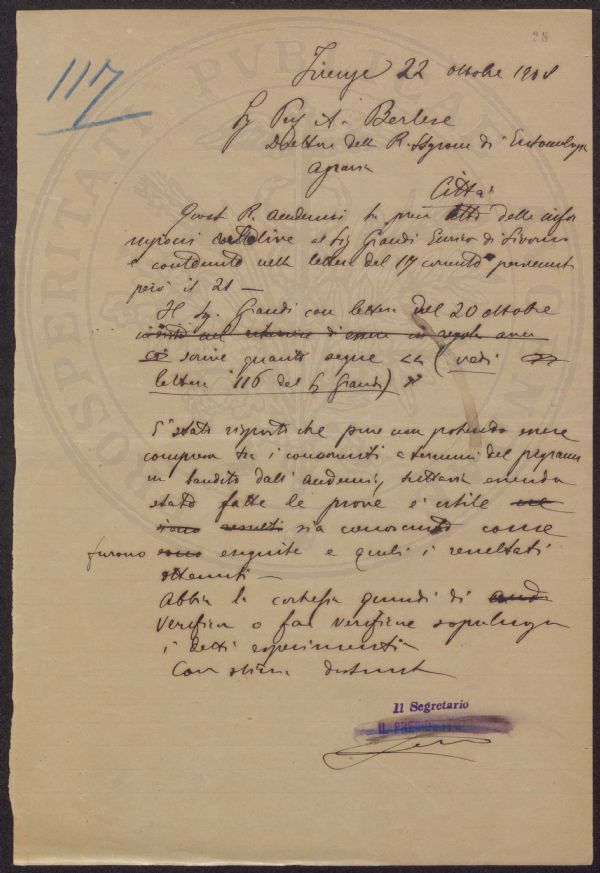 28
117
Firenze 22 ottobre 1908
Sg Prof A. Berlese
Direttore della R. Stazione di Entomologia
Agraria
Città
Quest R. accademia
relative al Sig Giandi Enrico di Livorno
e contenuto nella lettera del 17 corrente pervenuta
però il 21 —
Il Sg. Giandi con lettera del 20 ottobre
così scrive quanto segue << (vedi
lettera 116 del Sg Giandi) >>
E' stato risposto che pure non potendo essere
compreso tra i concorrenti a termini del programma
bandito dall' accademia, tuttavia essendo
stato fatte le prove è utile
sia conosciuto come
furono eseguite e quali i resultati
ottenuti —
Abbia la cortesia quindi di
verificare o far verificare sopraluogo
i detti esperimenti
Con stima
Il Segretario
IL PRESIDENTE